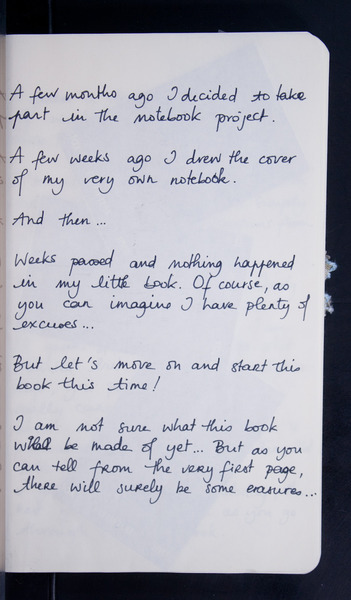 A few months ago I decided to take
part in the notebook project.
A few weeks ago I drew the cover
of my very own notebook.
And then...
Weeks passed and nothing happened
in my little book. Of course, as
you can imagine I have plenty of
excuses...
But let's move on and start this
book this time!
I am not sure what this book
will be made of yet... But as you
can tell from the very first page,
there will surely be some erasures...